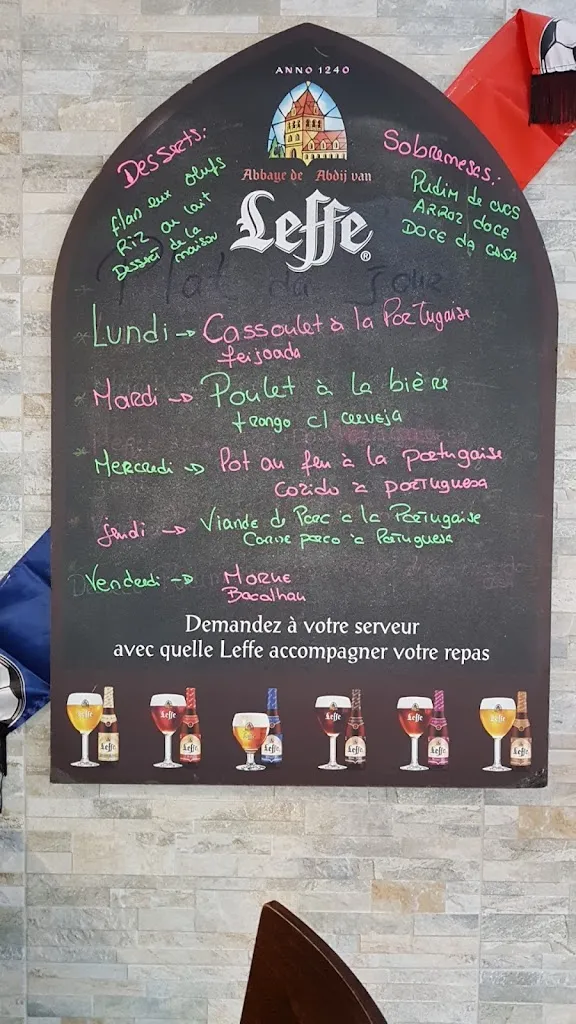 ANNO 1240
Abbaye de Abdij van
Leffe®
Desserts:
flan aux œufs
Riz au lait
Dessert de la
maison
Sobremesas:
Pudim de ovos
ARROZ doce
DOCE da casa
Plat du Jour
Lundi → Cassoulet à la Portugaise
feijoada
Mardi → Poulet à la bière
frango c/ cerveja
Mercredi → Pot au feu à la portugaise
cozido à portuguesa
Jeudi → Viande de Porc à la Portugaise
Carne porco à Portuguesa
Vendredi → Morue
Bacalhau
Demandez à votre serveur
avec quelle Leffe accompagner votre repas